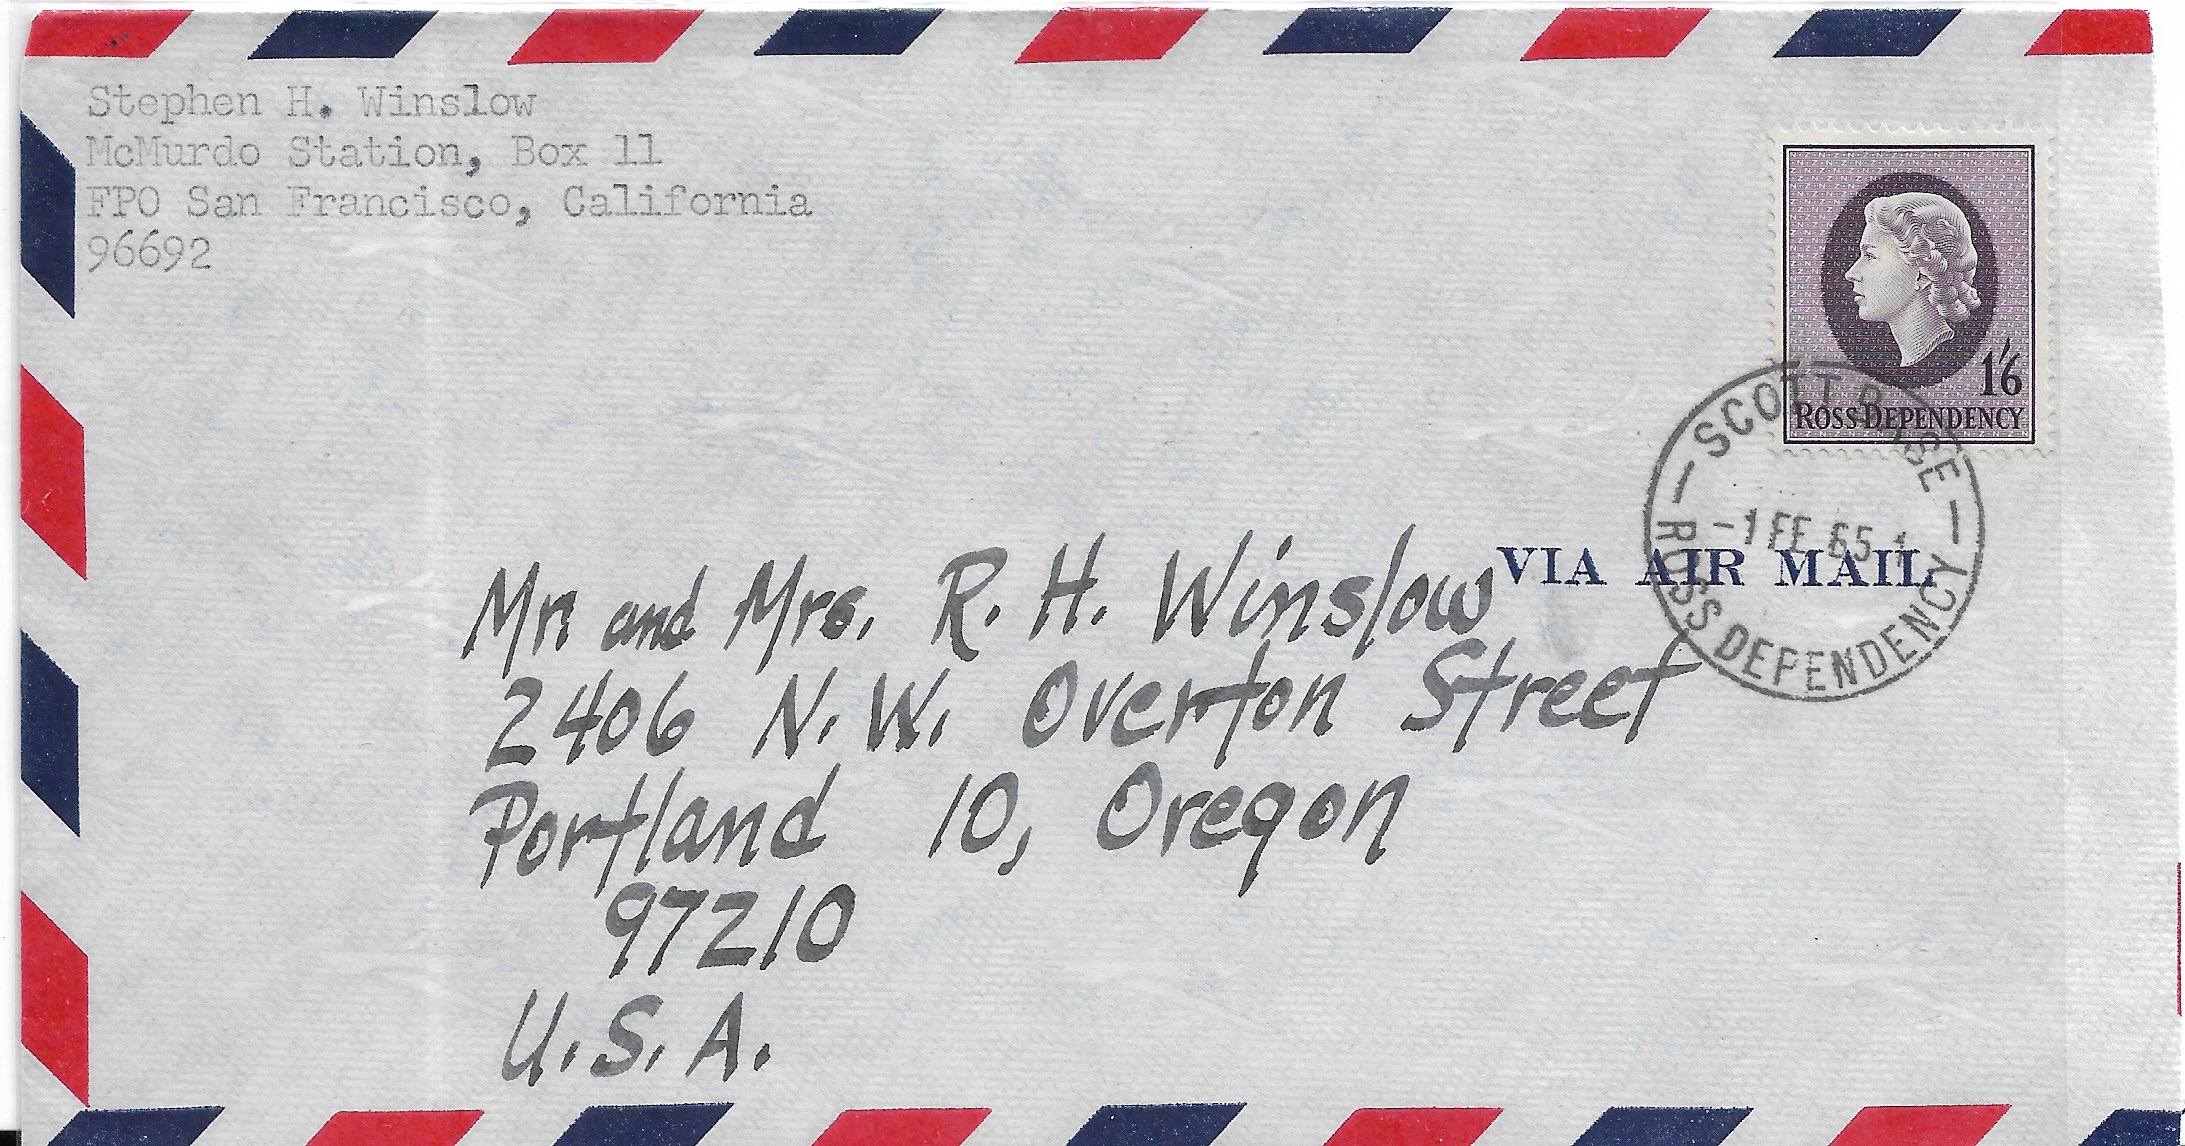 Stephen H. Winslow
McMurdo Station, Box 11
FPO San Francisco, California
96692
1/6
ROSS DEPENDENCY
SCOTT BASE
-1 FE 65
ROSS DEPENDENCY
VIA AIR MAIL
Mr. and Mrs. R. H. Winslow
2406 N.W. Overton Street
Portland 10, Oregon
97210
U.S.A.